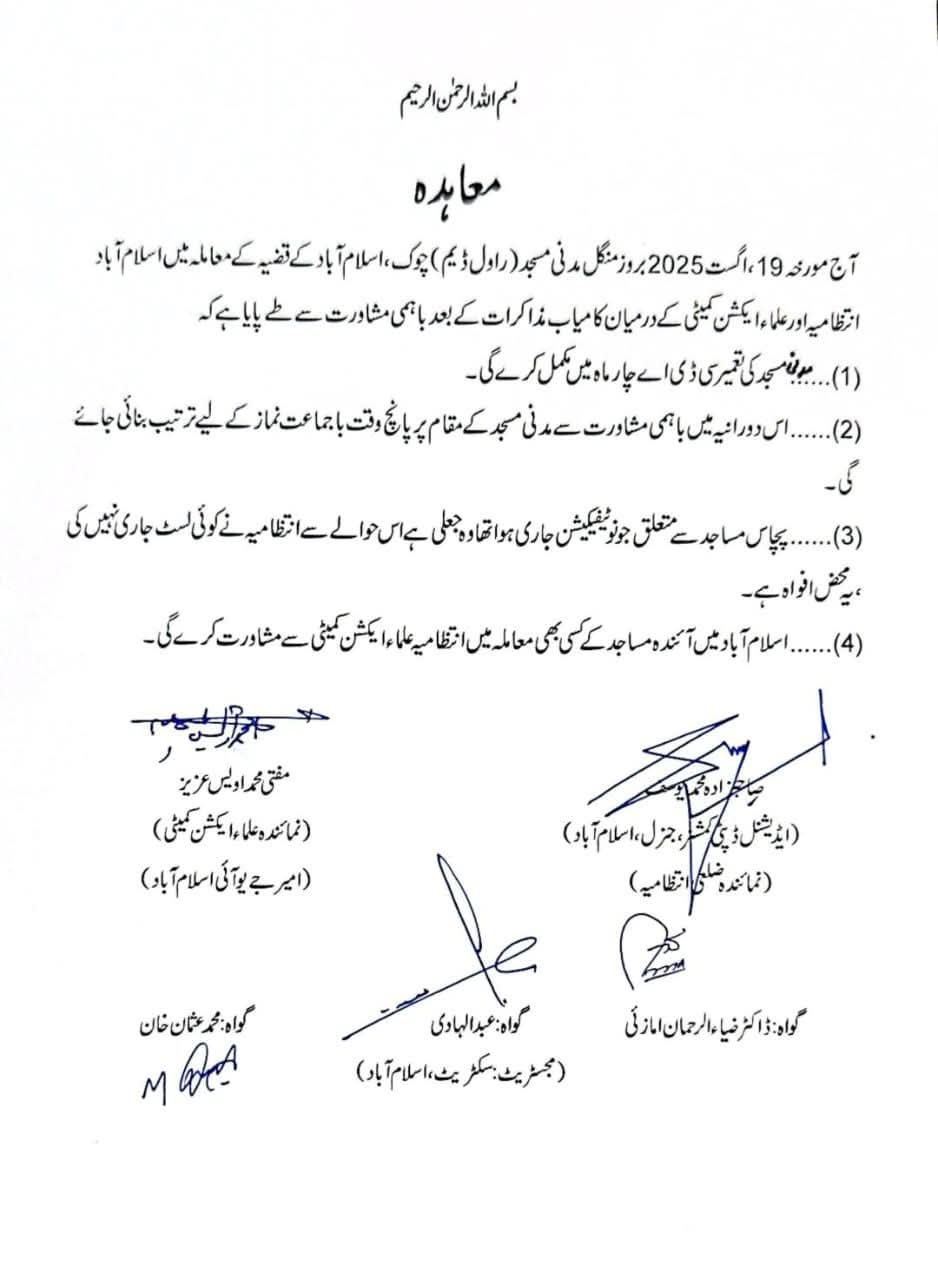 بسم اللہ الرحمٰن الرحیم
معاہدہ
آج مورخہ 19،اگست 2025 بروز منگل مدنی مسجد (راول ڈیم) چوک، اسلام آباد کے قضیہ کے معاملہ میں اسلام آباد
انتظامیہ اور علماء ایکشن کمیٹی کے درمیان کامیاب مذاکرات کے بعد باہمی مشاورت سے طے پایا ہے کہ
(1)...مدنی مسجد کی تعمیر سی ڈی اے چار ماہ میں مکمل کرے گی۔
(2)......اس دورانیہ میں باہمی مشاورت سے مدنی مسجد کے مقام پر پانچ وقت با جماعت نماز کے لیے ترتیب بنائی جائے
گی۔
(3)......پچاس مساجد سے متعلق جو نوٹیفیکیشن جاری ہوا تھا وہ جعلی ہے اس حوالے سے انتظامیہ نے کوئی لسٹ جاری نہیں کی
،یہ محض افواہ ہے۔
(4)......اسلام آباد میں آئندہ مساجد کے کسی بھی معاملہ میں انتظامیہ علماء ایکشن کمیٹی سے مشاورت کرے گی۔
صاحبزادہ محمد یوسف
مفتی محمد اویس عزیز
(ایڈیشنل ڈپٹی کمشنر، جنرل، اسلام آباد)
(نمائندہ علماء ایکشن کمیٹی)
(نمائندہ ضلعی انتظامیہ)
(امیر جے یو آئی اسلام آباد)
گواہ: ڈاکٹر ضیاء الرحمان امازئی
گواہ: عبدالہادی
گواہ: محمد عثمان خان
(مجسٹریٹ: سکٹریٹ، اسلام آباد)